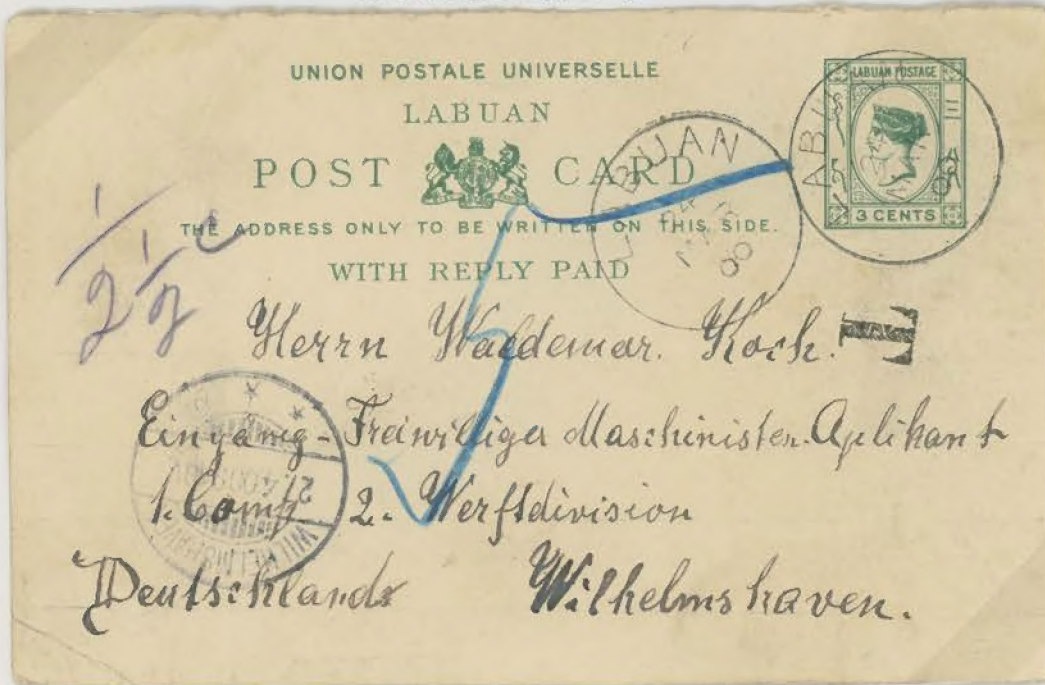 UNION POSTALE UNIVERSELLE
LABUAN
POST CARD
THE ADDRESS ONLY TO BE WRITTEN ON THIS SIDE.
WITH REPLY PAID
LABUAN POSTAGE
3 CENTS
LABUAN
24
MR
00
LABUAN
24
00
1/2 1/2 c
5
T
Herrn Waldemar. Koch.
Einyärig-Freiwilliger Maschinisten-Aplikant
1. Comp 2. Werftdivision
Deutschlands Wilhelmshaven.
WILHELMSHAVEN
27.4.00